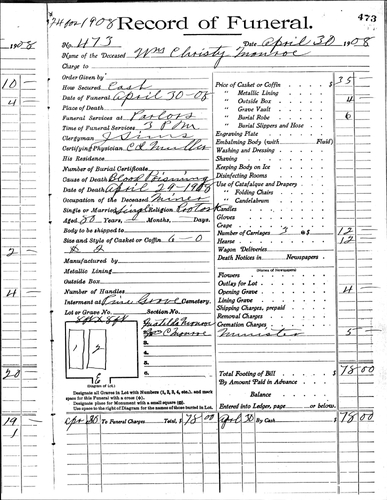 1908 Record of Funeral. 473
1908
No. 473 Date April 30 1908
Name of the Deceased Wm Christy Monroe
Charge to
Order Given by
How Secured Cash
Date of Funeral April 30-08
Place of Funeral
Funeral Services at Parlors
Time of Funeral Services 3 PM
Clergyman J Sims
Certifying Physician C E Muller
His Residence
Number of Burial Certificate
Cause of Death Blood Poisning
Date of Death April 29-1908
Occupation of the Deceased Miner
Single or Married Single Religion
Aged 80 Years, Months, Days.
Body to be shipped to
Size and Style of Casket or Coffin 6-0
Manufactured by
Metallic Lining
Outside Box
Number of Handles
Interment at Pine Grove Cemetery.
Lot or Grave No. Section No.
8ft x 8ft
1 2
6
Matilda Monroe
Wm C Monroe
(Diagram of Lot.)
Designate all Graves in Lot with Numbers (1, 2, 3, 4, etc.), and mark
space for this Funeral with a cross (+).
Designate place for Monument with a small square (□).
Use space to the right of Diagram for the names of those buried in Lot.
Price of Casket or Coffin $ 35
" Metallic Lining
" Outside Box 4
" Grave Vault
" Burial Robe 6
" Burial Slippers and Hose
Engraving Plate
Embalming Body (with Fluid)
Washing and Dressing
Shaving
Keeping Body on Ice
Disinfecting Rooms
Use of Catafalque and Drapery
" Folding Chairs
" Candelabrum
Candles
Gloves
Crape
Number of Carriages 3 $ 12
Hearse 12
Wagon Deliveries
Death Notices in Newspapers
(Names of Newspapers)
Flowers
Outlay for Lot
Opening Grave 4
Lining Grave
Shipping Charges, prepaid
Removal Charges
Cremation Charges
Minister 5
Total Footing of Bill $ 78 00
By Amount Paid in Advance
Balance
Entered into Ledger, page or below.
Apr 30 To Funeral Charges Total, $ 78 00 April 30 By Cash 78 00
10
4
2
4
20
19
1